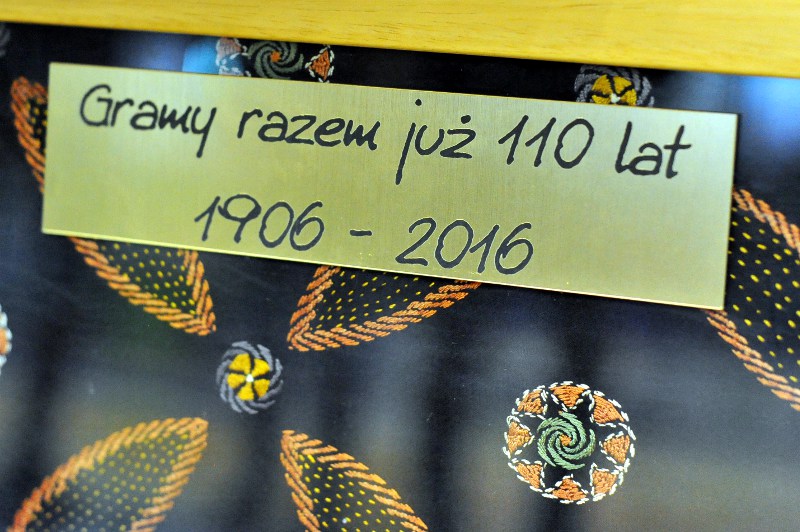 Gramy razem już 110 lat
1906 - 2016